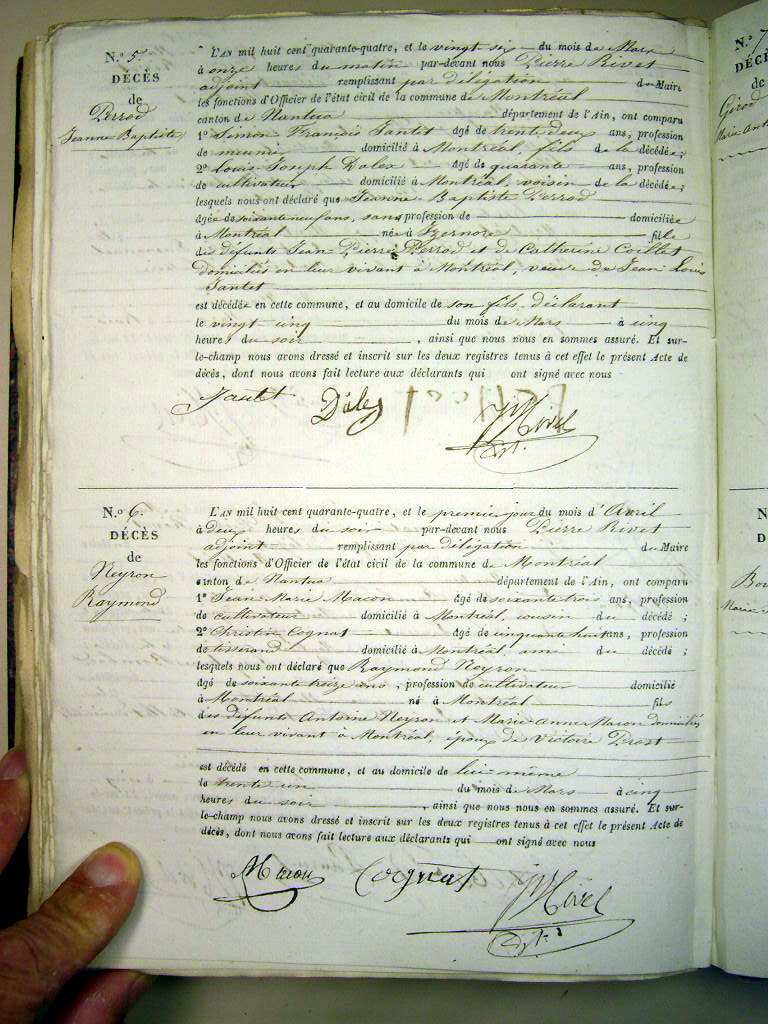 N.º 5
DÉCÈS
de
Perrod
Jeanne Baptiste
L'AN mil huit cent quarante-quatre, et le vingt six du mois de Mars
à onze heures du matin par-devant nous Pierre Rivet
adjoint remplissant par délégation du Maire
les fonctions d'Officier de l'état civil de la commune de Montréal
canton de Nantua département de l'Ain, ont comparu
1º Simon François Tantet âgé de trente deux ans, profession
de domicilié à Montréal, fils de la décédée;
2º Louis Joseph Dalex âgé de quarante ans, profession
de cultivateur domicilié à Montréal, voisin de la décédée;
lesquels nous ont déclaré que Jeanne Baptiste Perrod
âgée de soixante neuf ans, sans profession de domiciliée
à Montréal née à Izernore fille
des défunts Jean Pierre Perrod et de Catherine Coillet
domiciliés en leur vivant à Montréal, veuve de Jean Louis
Tantet
est décédée en cette commune, et au domicile de son fils déclarant
le vingt cinq du mois de Mars à cinq
heures du soir, ainsi que nous nous en sommes assuré. Et sur-
le-champ nous avons dressé et inscrit sur les deux registres tenus à cet effet le présent Acte de
décès, dont nous avons fait lecture aux déclarants qui ont signé avec nous
Tantet Dalex
N.º 6.
DÉCÈS
de
Neyron
Raymond
L'AN mil huit cent quarante-quatre, et le premier jour du mois d'Avril
à Deux heures du soir par-devant nous Pierre Rivet
adjoint remplissant par délégation du Maire
les fonctions d'Officier de l'état civil de la commune de Montréal
canton de Nantua département de l'Ain, ont comparu
1º Jean Marie Macon âgé de soixante trois ans, profession
de cultivateur domicilié à Montréal, cousin du décédé;
2º Christin Cognat âgé de cinquante huit ans, profession
de tisserand domicilié à Montréal ami du décédé;
lesquels nous ont déclaré que Raymond Neyron
âgé de soixante treize ans, profession de cultivateur domicilié
à Montréal né à Montréal fils
des défunts Antoine Neyron et Marie Anne Macon domiciliés
en leur vivant à Montréal, époux de Victoire Prost
est décédé en cette commune, et au domicile de lui-même
le trente un du mois de Mars à cinq
heures du soir, ainsi que nous nous en sommes assuré. Et sur-
le-champ nous avons dressé et inscrit sur les deux registres tenus à cet effet le présent Acte de
décès, dont nous avons fait lecture aux déclarants qui ont signé avec nous
Macon Cognat
N.º 7
DÉCÈS
de
Girod